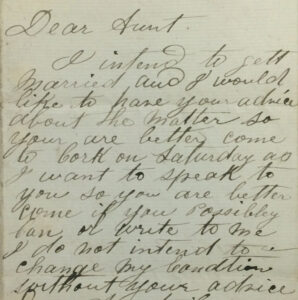 Dear Aunt.
I intend to gett
Married and I would
like to have your advice
about the Matter so
your are better come
to Cork on Saturday as
I want to speak to
you so you are better
come if you Possibley
Can or write to me
I do not intend to
change my Condition
without your advice